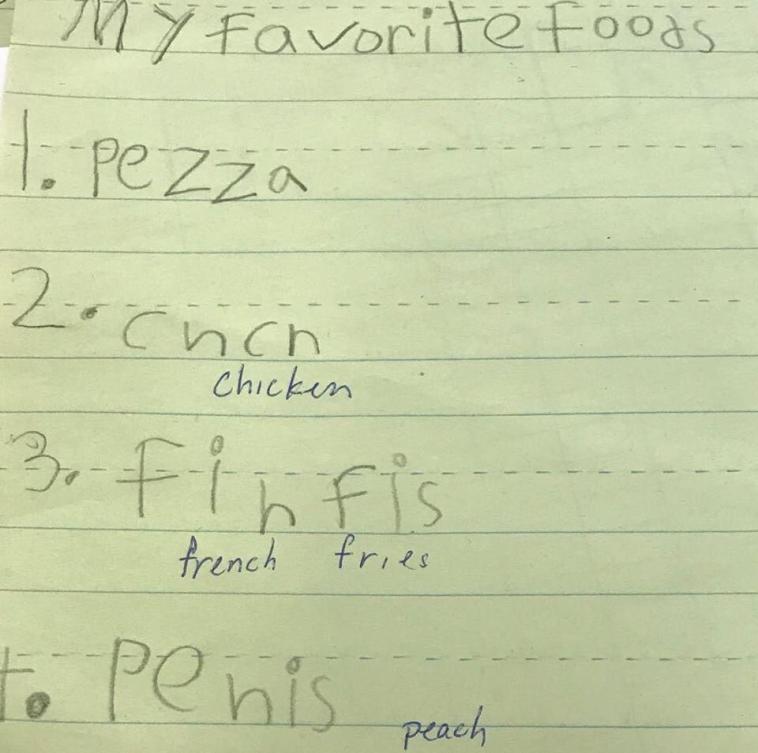 My Favorite Foods
1. pezza
2. cncn
chicken
3. Finfis
french fries
penis
peach